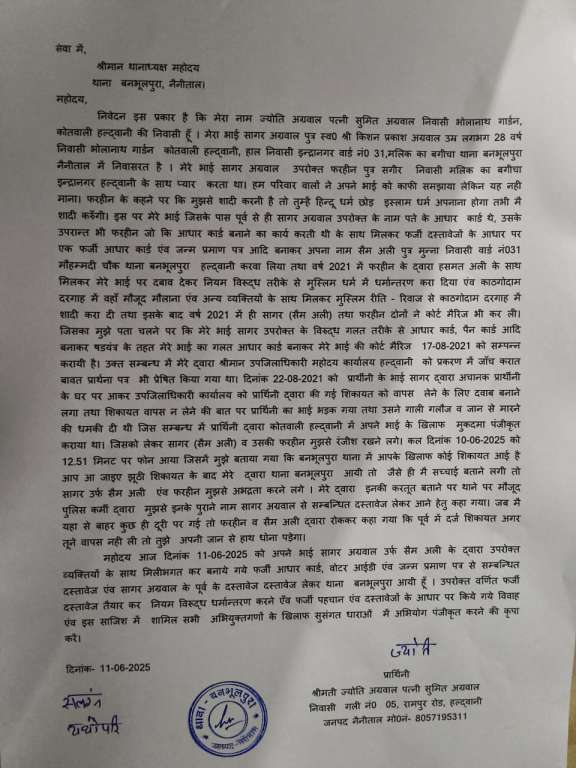 सेवा में,
श्रीमान थानाध्यक्ष महोदय
थाना बनभूलपुरा, नैनीताल।
महोदय,
निवेदन इस प्रकार है कि मेरा नाम ज्योति अग्रवाल पत्नी सुमित अग्रवाल निवासी भोलानाथ गार्डन,
कोतवाली हल्द्वानी की निवासी हूँ । मेरा भाई सागर अग्रवाल पुत्र स्व0 श्री किशन प्रकाश अग्रवाल उम्र लगभग 28 वर्ष
निवासी भोलानाथ गार्डन कोतवाली हल्द्वानी, हाल निवासी इन्द्रानगर वार्ड नं0 31,मलिक का बगीचा थाना बनभूलपुरा
नैनीताल में निवासरत है । मेरे भाई सागर अग्रवाल उपरोक्त फरहीन पुत्र सगीर निवासी मलिक का बगीचा
इन्द्रानगर हल्द्वानी के साथ प्यार करता था। हम परिवार वालों ने अपने भाई को काफी समझाया लेकिन यह नही
माना। फरहीन के कहने पर कि मुझसे शादी करनी है तो तुम्हे हिन्दू धर्म छोड़ इस्लाम धर्म अपनाना होगा तभी मैं
शादी करुँगी। इस पर मेरे भाई जिसके पास पूर्व से ही सागर अग्रवाल उपरोक्त के नाम पते के आधार कार्ड थे, उसके
उपरान्त भी फरहीन जो कि आधार कार्ड बनाने का कार्य करती थी के साथ मिलकर फर्जी दस्तावेजों के आधार पर
एक फर्जी आधार कार्ड एंव जन्म प्रमाण पत्र आदि बनाकर अपना नाम सैम अली पुत्र मुन्ना निवासी वार्ड नं031
मौहम्मदी चौक थाना बनभूलपुरा हल्द्वानी करवा लिया तथा वर्ष 2021 में फरहीन के द्वारा हसमत अली के साथ
मिलकर मेरे भाई पर दबाव देकर नियम विरुद्ध तरीके से मुस्लिम धर्म में धर्मान्तरण करा दिया एंव काठगोदाम
दरगाह में वहाँ मौजूद मौलाना एंव अन्य व्यक्तियों के साथ मिलकर मुस्लिम रीति - रिवाज से काठगोदाम दरगाह में
शादी करा दी तथा इसके बाद वर्ष 2021 में ही सागर (सैम अली) तथा फरहीन दोनों ने कोर्ट मैरिज भी कर ली।
जिसका मुझे पता चलने पर कि मेरे भाई सागर उपरोक्त के विरुद्ध गलत तरीके से आधार कार्ड, पैन कार्ड आदि
बनाकर षडयंत्र के तहत मेरे भाई का गलत आधार कार्ड बनाकर मेरे भाई की कोर्ट मैरिज 17-08-2021 को सम्पन्न
करायी है। उक्त सम्बन्ध में मेरे द्वारा श्रीमान उपजिलाधिकारी महोदय कार्यालय हल्द्वानी को प्रकरण में जाँच करात
बावत प्रार्थना पत्र भी प्रेषित किया गया था। दिनांक 22-08-2021 को प्रार्थीनी के भाई सागर द्वारा अचानक प्रार्थीनी
के घर पर आकर उपजिलाधिकारी कार्यालय को प्रार्थिनी द्वारा की गई शिकायत को वापस लेने के लिए दवाब बनाने
लगा तथा शिकायत वापस न लेने की बात पर प्रार्थिनी का भाई भडक गया तथा उसने गाली गलौज व जान से मारने
की धमकी दी थी जिस सम्बन्ध में प्रार्थिनी द्वारा कोतवाली हल्द्वानी मे अपने भाई के खिलाफ मुकदमा पंजीकृत
कराया था। जिसको लेकर सागर (सैम अली) व उसकी फरहीन मुझसे रंजीश रखने लगे। कल दिनांक 10-06-2025 को
12.51 मिनट पर फोन आया जिसमें मुझे बताया गया कि बनभूलपुरा थाना में आपके खिलाफ कोई शिकायत आई है
आप आ जाइए झूठी शिकायत के बाद मेरे द्वारा थाना बनभूलपुरा आयी तो जैसे ही मैं सच्चाई बताने लगी तो
सागर उर्फ सैम अली एंव फरहीन मुझसे अभद्रता करने लगे । मेरे द्वारा इनकी करतूत बताने पर थाने पर मौजूद
पुलिस कर्मी द्वारा मुझसे इनके पुराने नाम सागर अग्रवाल से सम्बन्धित दस्तावेज लेकर आने हेतु कहा गया। जब मैं
यहा से बाहर कुछ ही दूरी पर गई तो फरहीन व सैम अली द्वारा रोककर कहा गया कि पूर्व में दर्ज शिकायत अगर
तूने वापस नही ली तो तुझे अपनी जान से हाथ धोना पड़ेगा।
महोदय आज दिनांक 11-06-2025 को अपने भाई सागर अग्रवाल उर्फ सैम अली के द्वारा उपरोक्त
व्यक्तियों के साथ मिलीभगत कर बनाये गये फर्जी आधार कार्ड, वोटर आईडी एंव जन्म प्रमाण पत्र से सम्बन्धित
दस्तावेज एंव सागर अग्रवाल के पूर्व के दस्तावेज दस्तावेज लेकर थाना बनभूलपुरा आयी हूँ । उपरोक्त वर्णित फर्जी
दस्तावेज तैयार कर नियम विरुद्ध धर्मान्तरण करने एँव फर्जी पहचान एंव दस्तावेजों के आधार पर किये गये विवाह
एंव इस साजिश में शामिल सभी अभियुक्तगणों के खिलाफ सुसंगत धाराओं में अभियोग पंजीकृत करने की कृपा
करें।
ज्योति
दिनांक- 11-06-2025
प्रार्थिनी
श्रीमती ज्योति अग्रवाल पत्नी सुमित अग्रवाल
निवासी गली नं0 05, रामपुर रोड, हल्द्वानी
जनपद नैनीताल मो0नं- 8057195311
संलग्न
यथोपरि
थाना - बनभूलपुरा
जनपद-नैनीताल